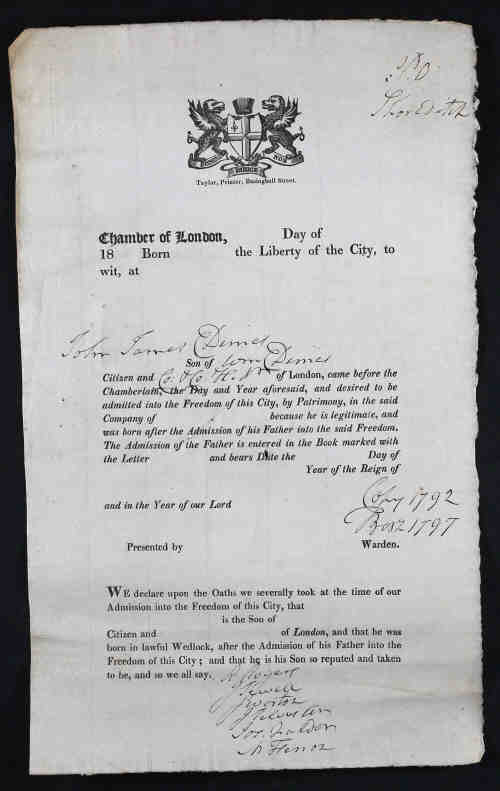 Shoreditch
DOMINE NOS
DIRIGE
Taylor, Printer, Basinghall Street.
Chamber of London, Day of
18 Born the Liberty of the City, to
wit, at
John James Dimes
Son of Wm Dimes
Citizen and of London, came before the
Chamberlain, the Day and Year aforesaid, and desired to be
admitted into the Freedom of this City, by Patrimony, in the said
Company of because he is legitimate, and
was born after the Admission of his Father into the said Freedom.
The Admission of the Father is entered in the Book marked with
the Letter and bears Date the Day of
Year of the Reign of
Copy 1792
and in the Year of our Lord
1797
Presented by Warden.
WE declare upon the Oaths we severally took at the time of our
Admission into the Freedom of this City, that
is the Son of
Citizen and of London, and that he was
born in lawful Wedlock, after the Admission of his Father into the
Freedom of this City; and that he is his Son so reputed and taken
to be, and so we all say.